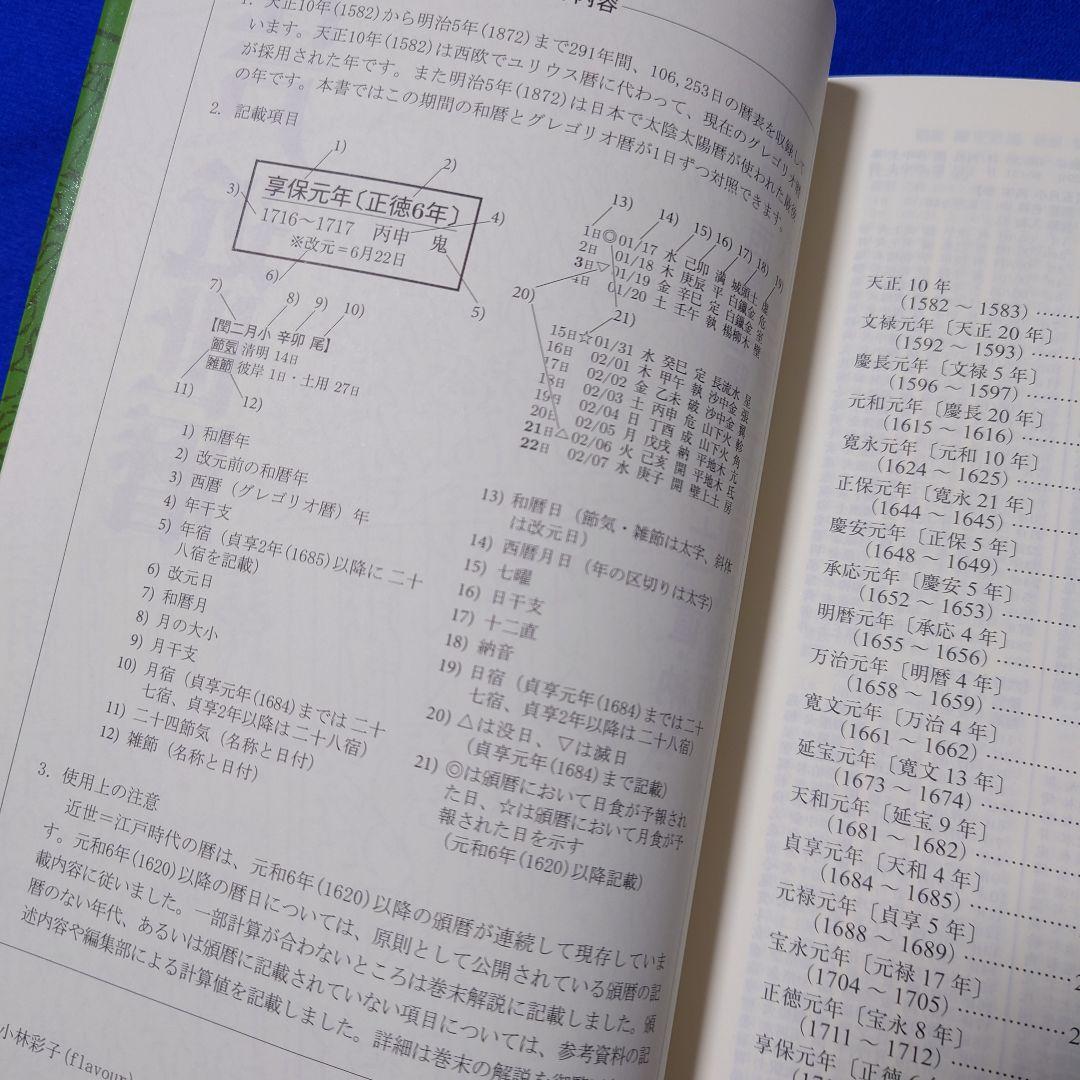 内容
1. 天正10年(1582)から明治5年(1872)まで291年間、106,253日の暦表を収録して
います。天正10年(1582)は西欧でユリウス暦に代わって、現在のグレゴリオ暦
が採用された年です。また明治5年(1872)は日本で太陰太陽暦が使われた最後
の年です。本書ではこの期間の和暦とグレゴリオ暦が1日ずつ対照できます。
2. 記載項目
1)
2)
3)
享保元年〔正徳6年〕
4)
1716～1717 丙申 鬼
※改元＝6月22日
5)
6)
7)
8) 9) 10)
【閏二月小 辛卯 尾】
節気 清明 14日
雑節 彼岸 1日・土用 27日
11)
12)
13) 14) 15) 16) 17) 18) 19)
1日◎01/17 水 己卯 満 城頭土 虚
2日 01/18 木 庚辰 平 白鑞金 危
3日▽01/19 金 辛巳 定 白鑞金 室
4日 01/20 土 壬午 執 楊柳木 壁
20)
21)
15日☆01/31 水 癸巳 定 長流水 星
16日 02/01 木 甲午 執 沙中金 張
17日 02/02 金 乙未 破 沙中金 翼
18日 02/03 土 丙申 危 山下火 軫
19日 02/04 日 丁酉 成 山下火 角
20日 02/05 月 戊戌 納 平地木 亢
21日△02/06 火 己亥 開 平地木 氐
22日 02/07 水 庚子 開 壁上土 房
1) 和暦年
2) 改元前の和暦年
3) 西暦（グレゴリオ暦）年
4) 年干支
5) 年宿（貞享2年(1685)以降に二十
八宿を記載）
6) 改元日
7) 和暦月
8) 月の大小
9) 月干支
10) 月宿（貞享元年(1684)までは二十
七宿、貞享2年以降は二十八宿）
11) 二十四節気（名称と日付）
12) 雑節（名称と日付）
13) 和暦日（節気・雑節は太字、斜体
は改元日）
14) 西暦月日（年の区切りは太字）
15) 七曜
16) 日干支
17) 十二直
18) 納音
19) 日宿（貞享元年(1684)までは二十
七宿、貞享2年以降は二十八宿）
20) △は没日、▽は滅日
（貞享元年(1684)まで記載）
21) ◎は頒暦において日食が予報され
た日、☆は頒暦において月食が予
報された日を示す
（元和6年(1620)以降記載）
3. 使用上の注意
近世＝江戸時代の暦は、元和6年(1620)以降の頒暦が連続して現存していま
す。元和6年(1620)以降の暦日については、原則として公開されている頒暦の記
載内容に従いました。一部計算が合わないところは巻末解説に記載しました。頒
暦のない年代、あるいは頒暦に記載されていない項目については、参考資料の記
述内容や編集部による計算値を記載しました。詳細は巻末の解説を御覧
小林彩子(flavour)
天正 10 年
（1582 ～ 1583）
文禄元年〔天正 20 年〕
（1592 ～ 1593）
慶長元年〔文禄 5 年〕
（1596 ～ 1597）
元和元年〔慶長 20 年〕
（1615 ～ 1616）
寛永元年〔元和 10 年〕
（1624 ～ 1625）
正保元年〔寛永 21 年〕
（1644 ～ 1645）
慶安元年〔正保 5 年〕
（1648 ～ 1649）
承応元年〔慶安 5 年〕
（1652 ～ 1653）
明暦元年〔承応 4 年〕
（1655 ～ 1656）
万治元年〔明暦 4 年〕
（1658 ～ 1659）
寛文元年〔万治 4 年〕
（1661 ～ 1662）
延宝元年〔寛文 13 年〕
（1673 ～ 1674）
天和元年〔延宝 9 年〕
（1681 ～ 1682）
貞享元年〔天和 4 年〕
（1684 ～ 1685）
元禄元年〔貞享 5 年〕
（1688 ～ 1689）
宝永元年〔元禄 17 年〕
（1704 ～ 1705）
正徳元年〔宝永 8 年〕
（1711 ～ 1712）
享保元年〔正徳 6